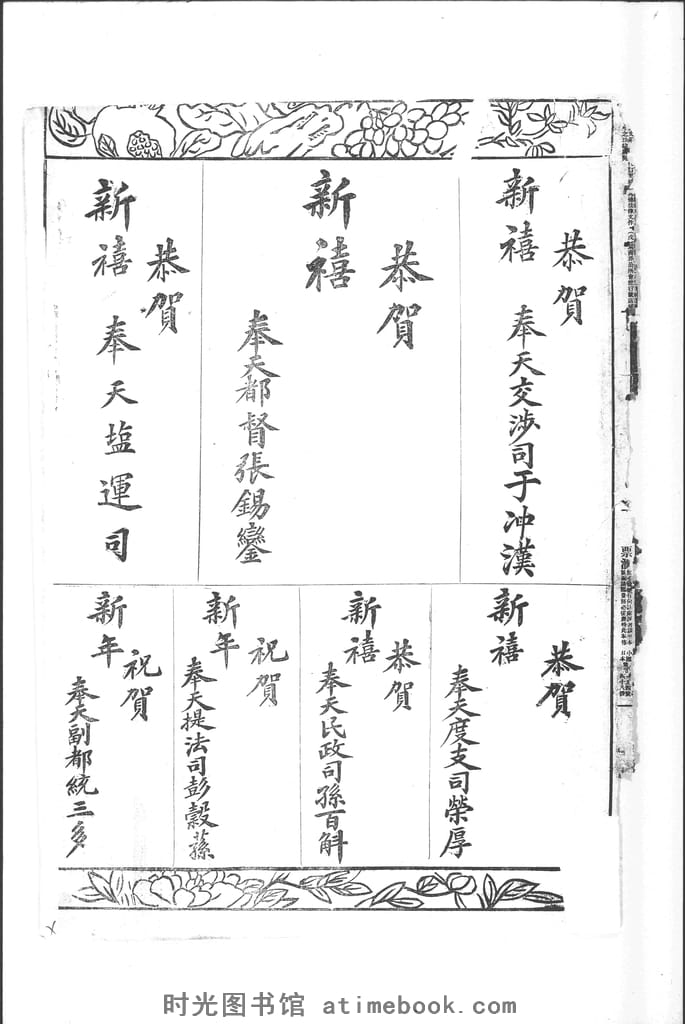 恭賀
新禧
奉天交渉司于冲漢
恭賀
新禧
奉天都督張錫鑾
恭賀
新禧
奉天塩運司
恭賀
新禧
奉天度支司榮厚
恭賀
新禧
奉天民政司孫百斛
祝賀
新年
奉天提法司彭穀蓀
祝賀
新年
奉天副都統三多
时光图书馆 atimebook.com